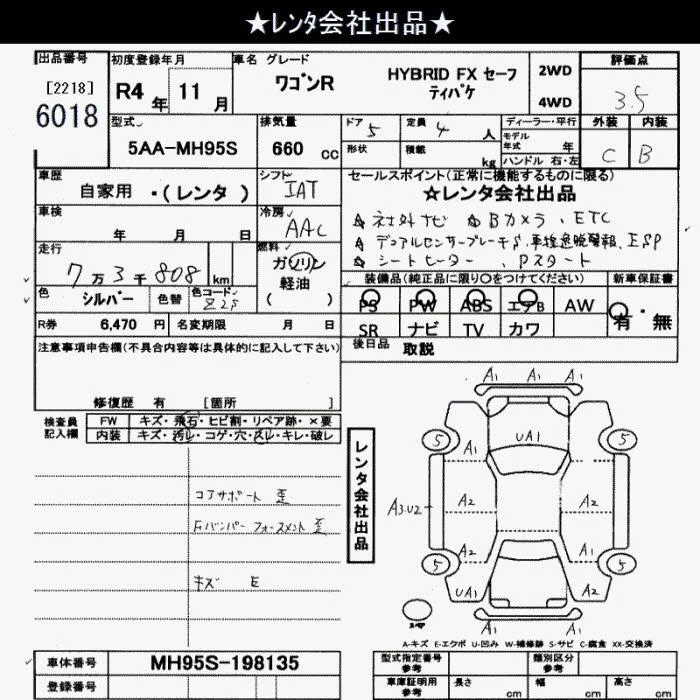 ★レンタ会社出品★
出品番号 初度登録年月 車名 グレード 評価点
[2218] R4年 11月 ワゴンR HYBRID FX セーフティパケ 2WD 3.5
6018 4WD 外装 内装
型式 排気量 ドア 5 定員 4人 ディーラー・平行 C B
5AA-MH95S 660 cc 形状 積載 kg モデル年式 年
ハンドル 右・左
車歴 シフト セールスポイント(正常に機能するものに限る)
自家用 ・(レンタ) IAT ★レンタ会社出品
車検 冷房 ☆社外ナビ ☆Bカメラ、ETC
年 月 日 AAC ☆デュアルセンサーブレーキS、車線逸脱警報、ESP
走行 燃料 ☆シートヒーター、Pスタート
7万3千808km ガソリン
軽油
( )
装備品(純正品に限り○をつけてください) 新車保証書
色 シルバー 色替 色コード Z2S
PS PW ABS エアB AW 有・無
R券 6,470 円 名変期限 月 日 SR ナビ TV カワ
注意事項申告欄(不具合内容等は具体的に記入して下さい) 後日品 取説
修復歴 有 [箇所 ]
検査員記入欄 FW キズ・飛石・ヒビ割・リペア跡・×要
内装 キズ・汚レ・コゲ・穴・スレ・キレ・破レ
コアサポート 歪
Fバンパーフォースメント 歪
キズ E
レンタ会社出品
A1 A1 A1
5 A1 UA1 5
A3.U2 A2 A2
A2 A1
5 UA1 A2 5
A-キズ E-エクボ U-凹み W-補修跡 S-サビ C-腐食 XX-交換済
車体番号 MH95S-198135 型式指定番号 参考 類別区分 参考
登録番号 車庫証明用 参考 長さ cm 幅 cm 高さ cm